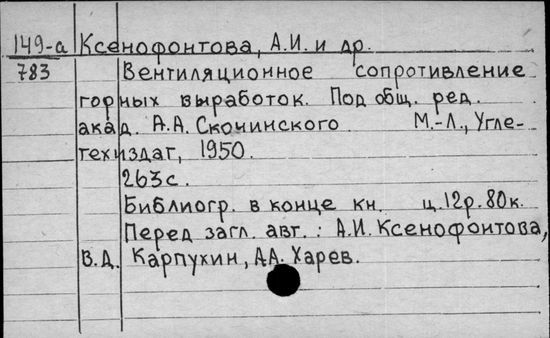 149-а Ксенофонтова, А.И. и др.
783 Вентиляционное сопротивление
горных выработок. Под общ. ред.
акад. А.А. Скочинского М.-Л., Угле-
техиздат, 1950.
263 с.
Библиогр. в конце кн. ц. 12р. 80к.
Перед загл. авт.: А.И. Ксенофонтова,
В.Д. Карпухин, А.А. Харев.